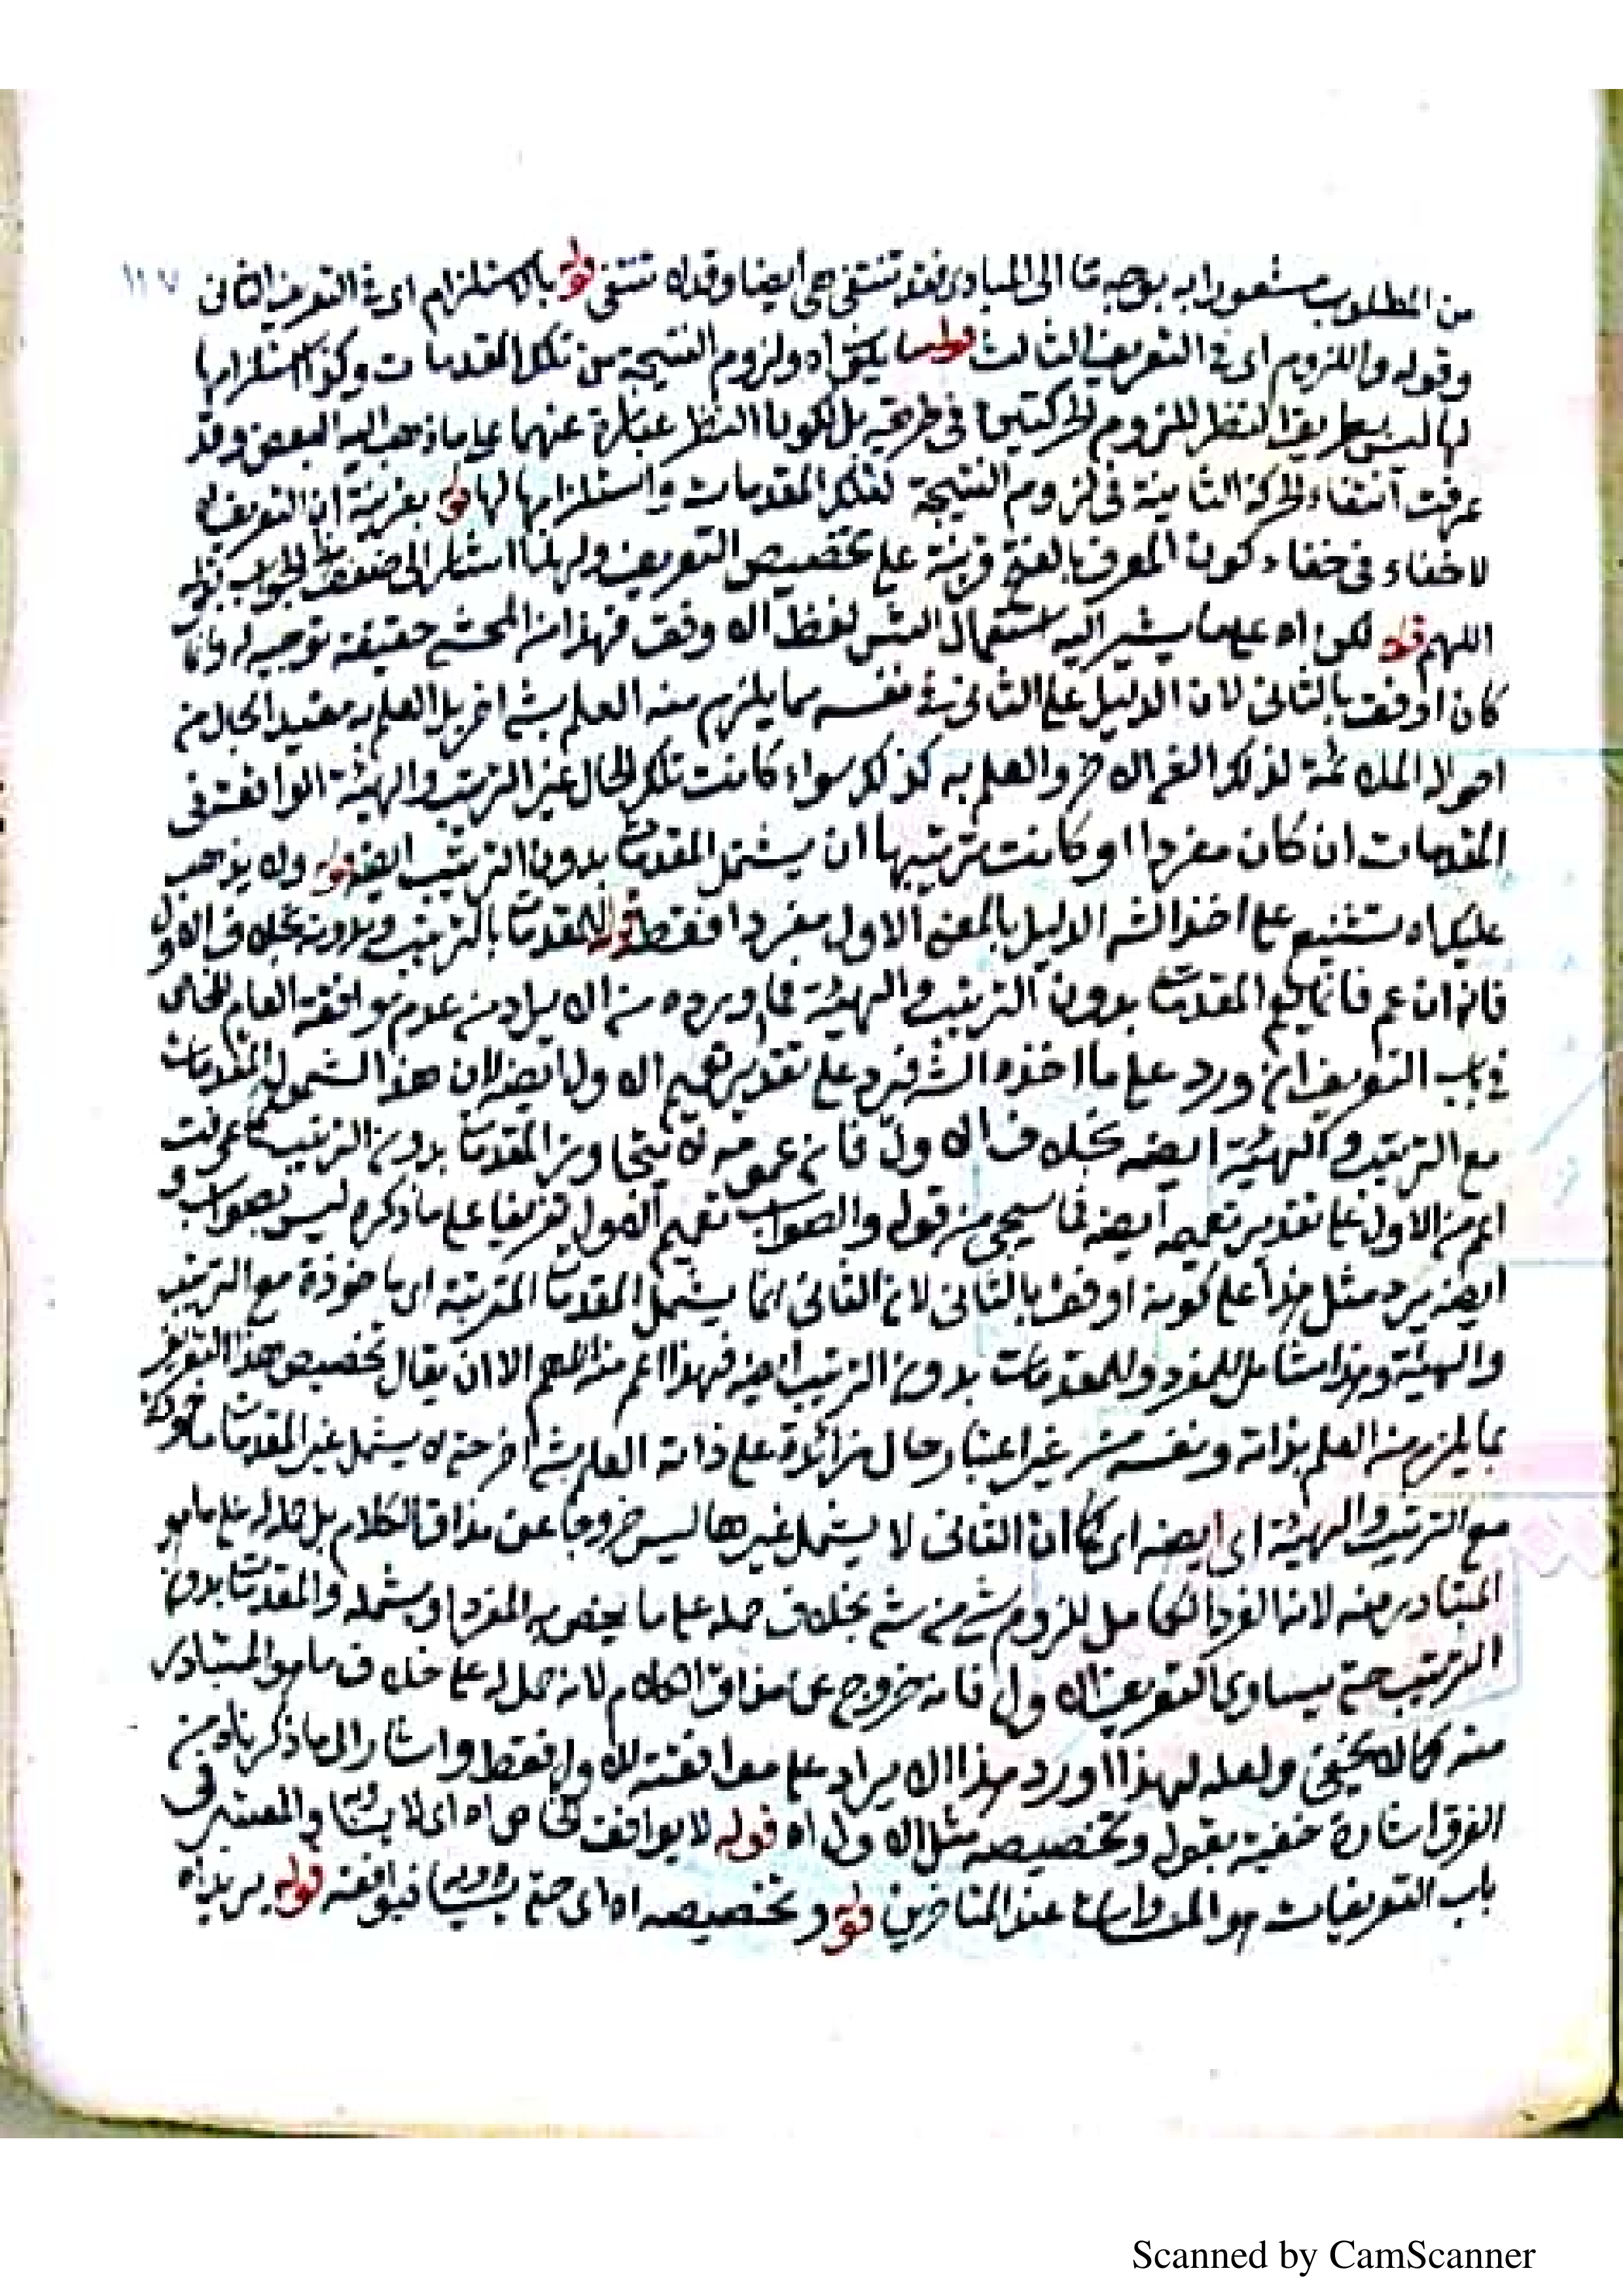 ١٠٧
من المطلوب مشعورا به بوجه ما الى المبادى فقد تنتفى هى ايضا وقد لا تنتفى قوله بالاستلزام اى فى التعريف الثانى
وقوله واللزوم اى فى التعريف الثالث قوله يكن اه ولزوم النتيجة من تلك المقدمات وكذا استلزامها
لها ليس بطريق النظر للزوم الحركتين فى طريقه بل لكون النظر عبارة عنهما على ما ذهب اليه البعض وقد
عرفت انتفاء الحركة الثانية فى لزوم النتيجة لتلك المقدمات واستلزامها لها قوله بقرينة ان التعريف اه
لا خفاء فى خفاء كون المعرف بالفتح قرينة على تخصيص التعريف ولهذا اشار الى ضعف الجواب بقوله
اللهم قوله لكن اه على ما يشير اليه استعمال الش لفظ الاوفق فهذا من المحشى حقيقة توجيه له وانما
كان اوفق بالثانى لان الدليل على الثانى فى نفسه مما يلزم منه العلم بشئ اخر بل العلم به مقيد الحال من
احوال الملائمة لذلك الغير الاخر والعلم به كذلك سواء كانت تلك الحال عين الترتيب والهيئة الواقعة فى
المقدمات ان كان مفردا او كانت ترتيبها ان يشتمل المقدمات بدون الترتيب ايضا قوله ولا يذهب
عليك اه تشنيع على اخذ الش الدليل بالمعنى الاول مفردا فقط قوله للمقدمات بالترتيب وبدونه بخلاف الاول
فانه ان عم فانما يعم المقدمات بدون الترتيب والهيئة فما ورده من الايراد من عدم موافقة العام للخاص
فى باب التعريف ان ورد على ما اخذه الش فيرد على تقدير تعميم الاول ايضا لان هذا الشمول للمقدمات
مع الترتيب والهيئة ايضا بخلاف الاول فان عمومه لا يتجاوز المقدمات بدون الترتيب كما عرفت
اعم من الاول على تقدير تعميمه ايضا فما سيجئ من قوله والصواب تعميم الاول تفريعا على ما ذكره ليس بصواب و
ايضا يرد مثل هذا على كونه اوفق بالثانى لان الثانى انما يشمل المقدمات المترتبة اى ماخوذة مع الترتيب
والهيئة وهذا شامل للمفرد وللمقدمات بدون الترتيب ايضا فهذا اعم منه اللهم الا ان يقال تخصيص هذا التعريف
بما يلزم من العلم بذاته ونفسه من غير اعتبار حال زائدة على ذاته العلم بشئ اخر حتى لا يشمل غير المقدمات ماخوذة
مع الترتيب والهيئة اى ايضا اى كما ان الثانى لا يشمل غيرها ليس خروجا عن مذاق الكلام بل حمل له على ما هو
المتبادر منه لانه الفرد الكامل للزوم شئ من شئ بخلاف حمله على ما يخص به المفرد او يشمله والمقدمات بدون
الترتيب حتى يساوى التعريف الاول فانه خروج عن مذاق الكلام لانه حمل له على خلاف ما هو المتبادر
منه كما لا يخفى ولعله لهذا اورد هذا الايراد على موافقته للاول فقط واشار الى ما ذكرناه من
الفرق اشارة خفية بقوله وتخصيصه مثل الاول اه قوله لا يوافق الخاص اه اى لا يساويه والمعتبر فى
باب التعريفات هو المساواة عند المتاخرين قوله وتخصيصه اه اى حتى يساويه فيوافقه قوله يريد اه
Scanned by CamScanner